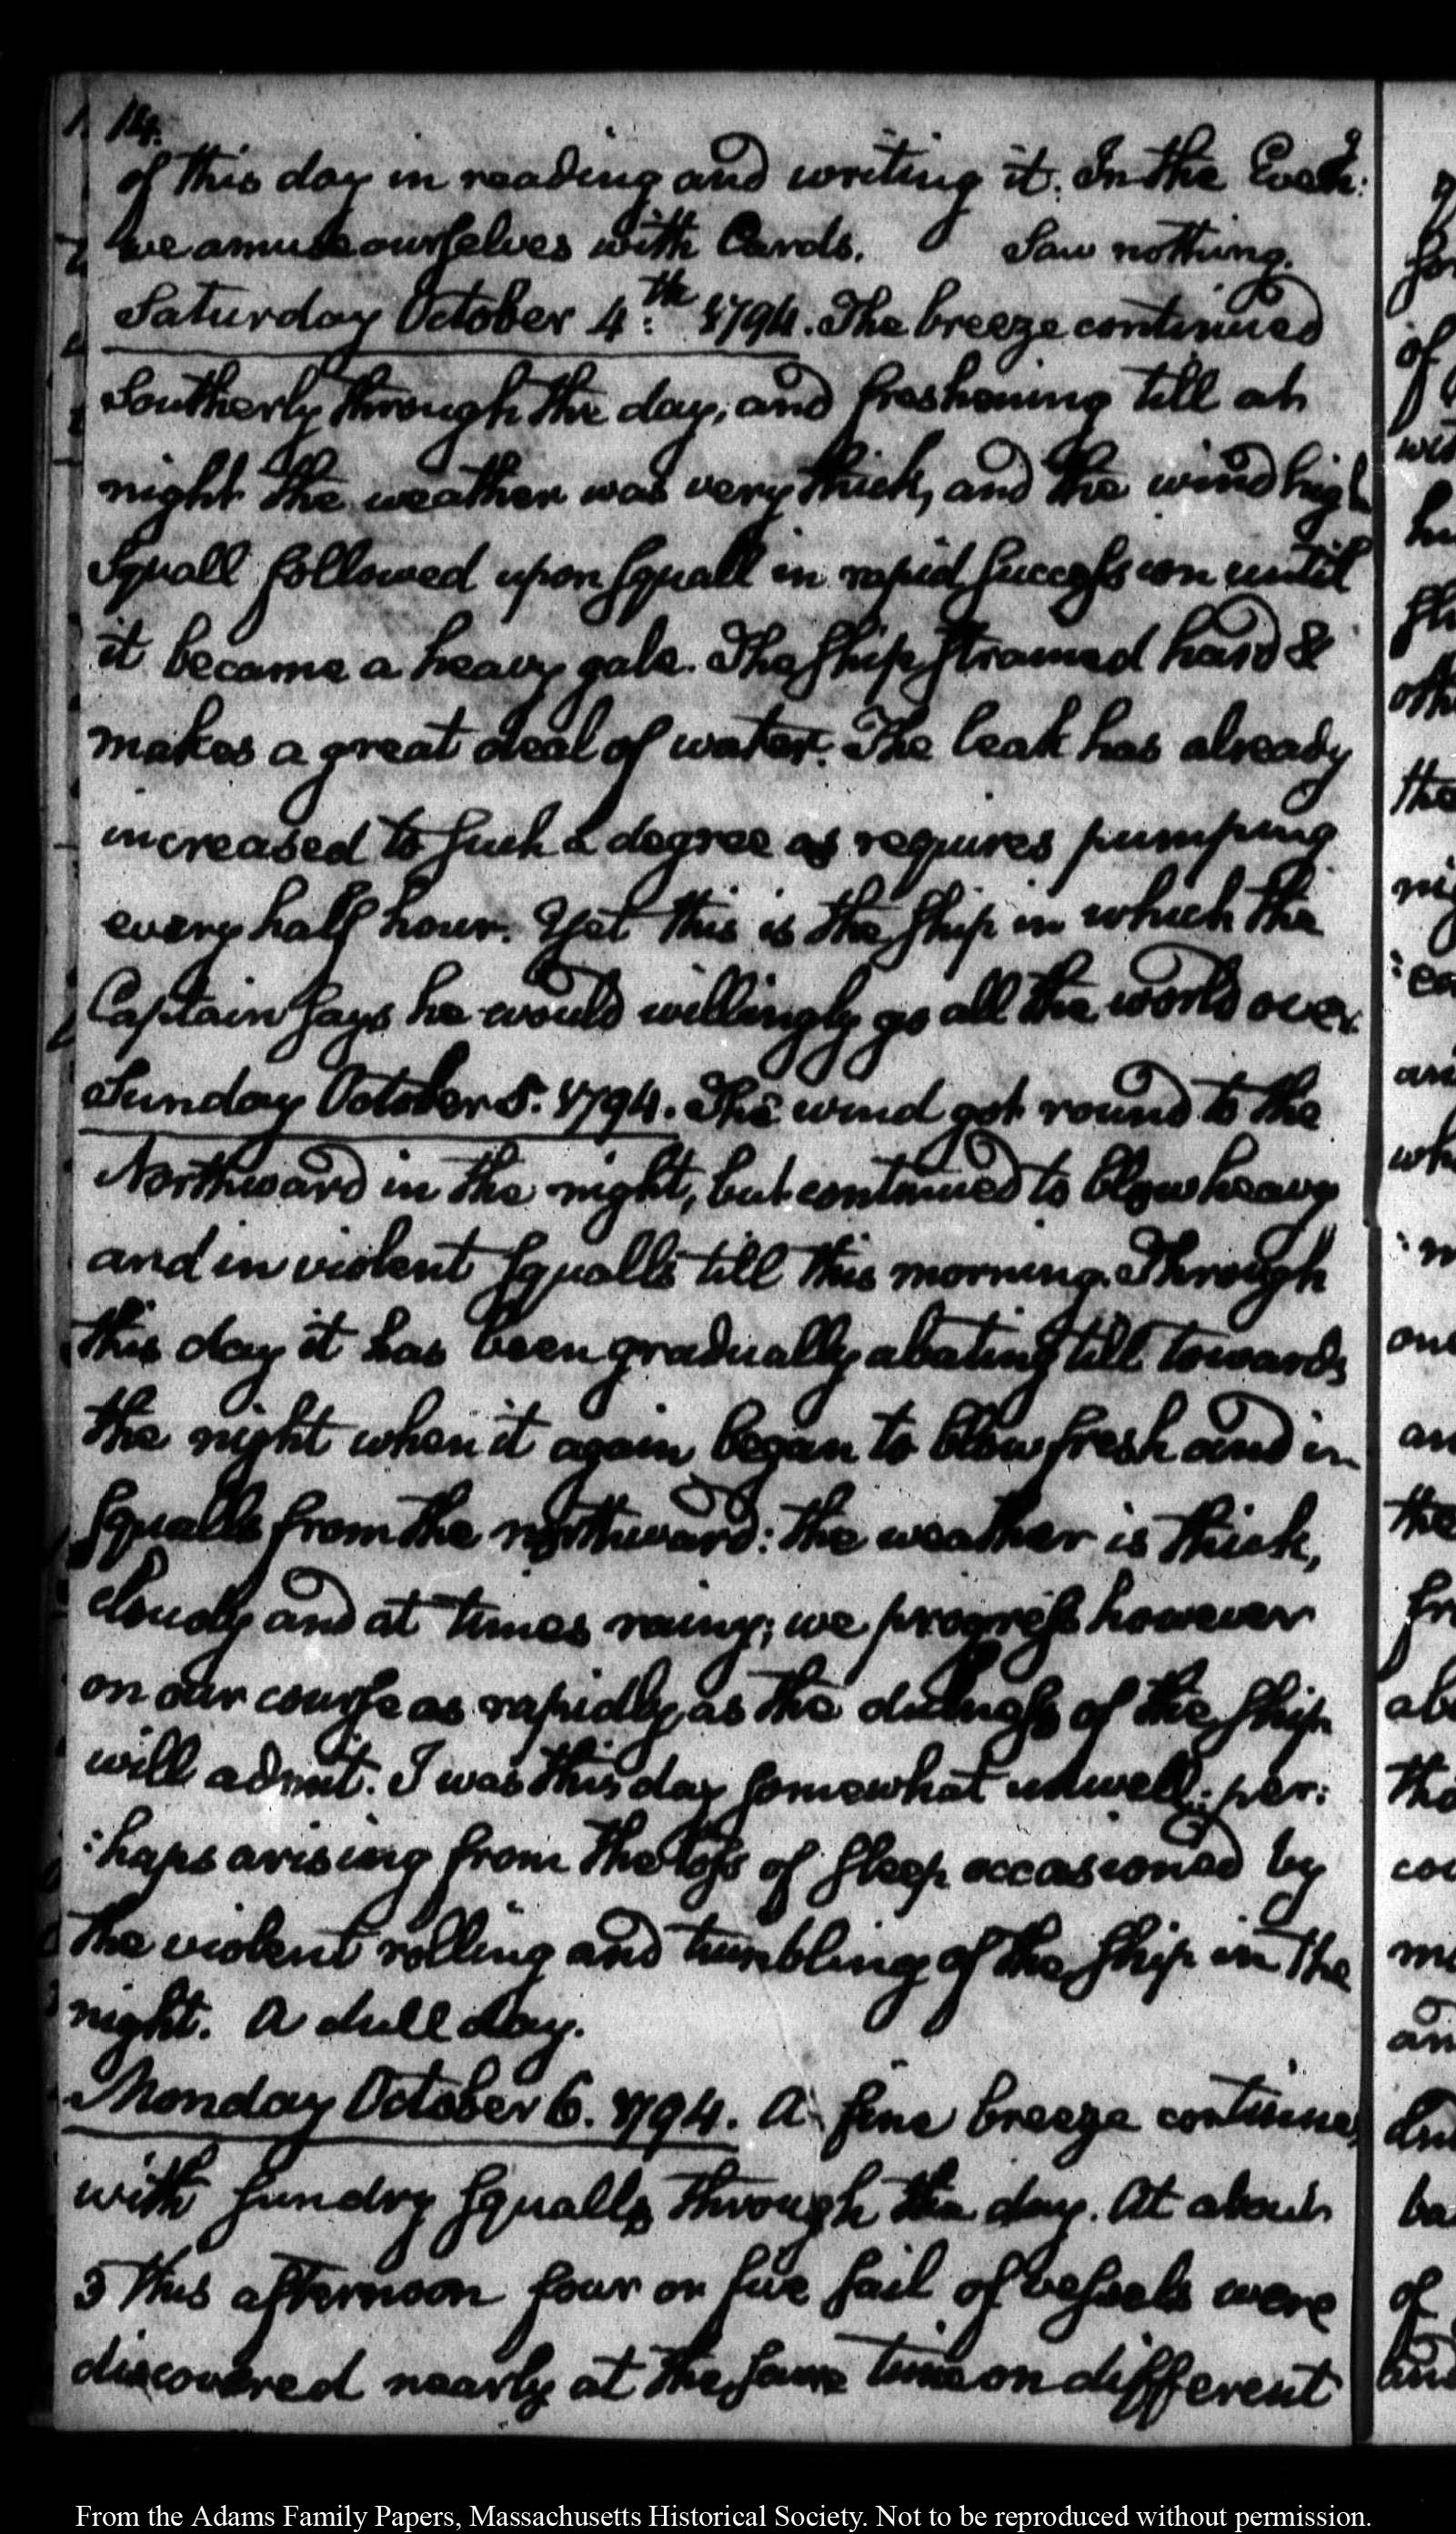 14.
of this day in reading and writing it. In the Eveng:
we amuse ourselves with Cards. Saw nothing.
Saturday October 4:th 1794. The breeze continued
Southerly through the day, and freshening till at
night the weather was very thick, and the wind high
Squall followed upon squall in rapid succession until
it became a heavy gale. The ship strained hard &
makes a great deal of water. The leak has already
increased to such a degree as requires pumping
every half hour. Yet this is the ship in which the
Captain says he would willingly go all the world over.
Sunday October 5. 1794. The wind got round to the
Northward in the night, but continued to blow heavy
and in violent squalls till this morning. Through
this day it has been gradually abating till towards
the night when it again began to blow fresh and in
squalls from the northward: the weather is thick,
cloudy and at times rainy; we progress however
on our course as rapidly as the dulness of the ship
will admit. I was this day somewhat unwell; per:
:haps arising from the loss of sleep occasioned by
the violent rolling and tumbling of the ship in the
night. A dull day.
Monday October 6. 1794. A fine breeze continues
with sundry squalls through the day. At about
3 this afternoon four or five sail of vessels were
discovered nearly at the same time on different
From the Adams Family Papers, Massachusetts Historical Society. Not to be reproduced without permission.